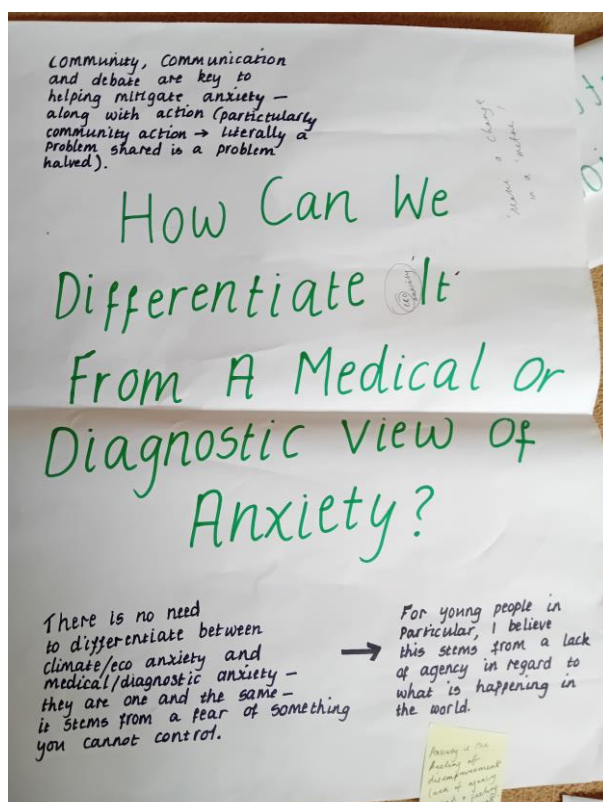 Community, Communication
and debate are key to
helping mitigate anxiety –
along with action (particularly
community action → literally a
problem shared is a problem
halved).
'Make a Change
in a
How Can We
Differentiate (eco anxiety) It
From A Medical Or
Diagnostic View Of
Anxiety?
There is no need
to differentiate between
climate/eco anxiety and
medical/diagnostic anxiety –
they are one and the same –
it stems from a fear of something
you cannot control.
→
For young people in
Particular, I believe
this stems from a lack
of agency in regard to
what is happening in
the world.
Anxiety is the
feeling of
disempowerment
lack of agency
feeling